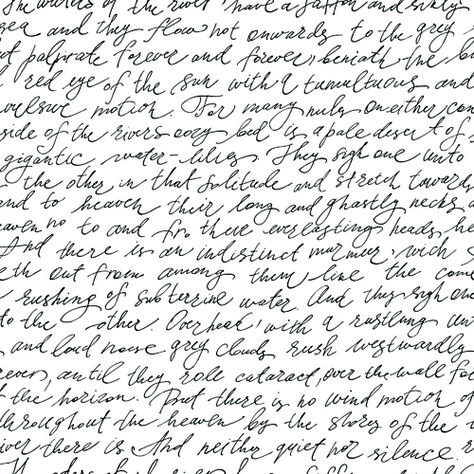 The waters of the river have a saffron and sickly
sea and they flow not onwards to the grey
ut palpitate forever and forever, beneath the
red eye of the sun with a tumultuous and
vulsive motion. For many miles on either
side of the rivers oozy bed is a pale desert of
gigantic water-lilies. They sigh one unto
the other in that solitude and stretch towards
and to heaven their long and ghastly necks a
eaven no to and fro there everlasting heads he
And there is an indistinct murmur wich
eth out from among them line the come
rushing of subterrine water. And they sigh one
to the other. Overhead, with a rustling un
and loud noise grey clouds rush westwardly
rever, until they role cataract, over the wall
f the horizon. But there is no wind motion o
throughout the heaven by the shores of the
iver there is And neither quiet nor silence.